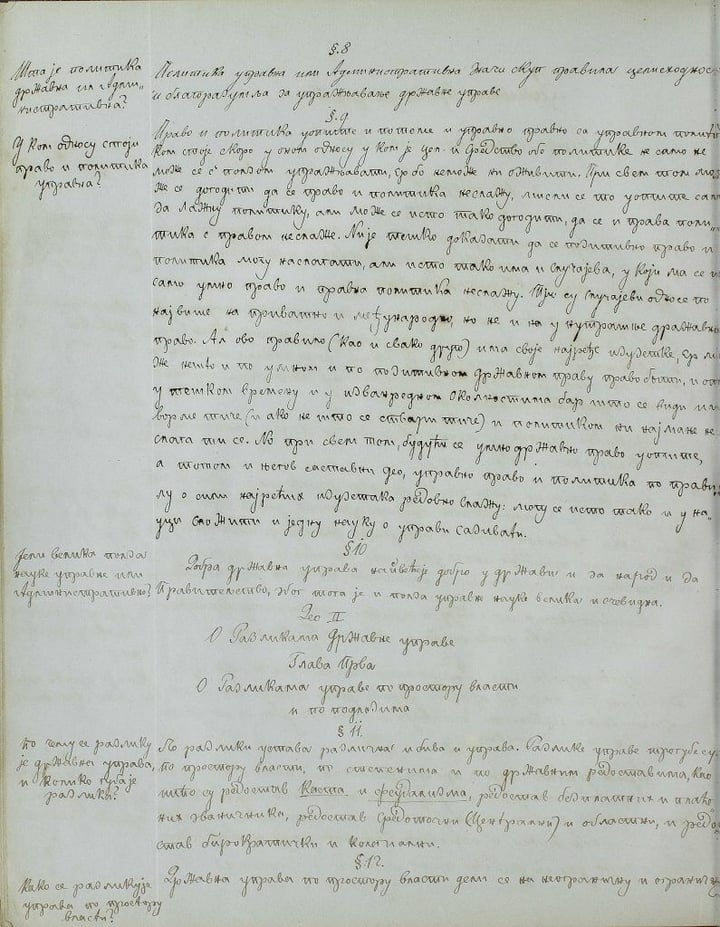 §.8
Шта је политика
државна или Админи-
нистративна?
Политика управна или Административна значи скуп правила цјелисходнос
и благоразумља за управљавање државне управе
§.9
У ком односу стоји
право и политика
управна?
Право и политика уопште и потоме и управно право са управном полити
ком стоје скоро у оном односу у ком је цељ и средство
може се с ползом управљавати, неможе ни оживити. При свем том мо
же се догодити да се право и политика неслажу, мисли се то уопште само
за лажну политику, али може се исто тако догодити, да се и права поли-
тика с правом неслаже. Није тешко доказати да се позитивно право и
политика могу неслагати, али исто тако има и случајева, у који ма се и
само умно право и права политика неслажу. Ови су случајеви односе по
највише на приватно и међународно, но не и на унутрашње државно
право. Ал ово правило (као и свако друго) има своје најређе изузетке, Ер мо
же нешто и по умном и по позитивном државном праву право бити, и опе
у тешком времену и у изванредном околностима бар што се види и
ворме тиче (и ако не што се ствари тиче) с политиком ни најмање не
слага ти се. Но при свем том, будући се умно државно право уопште,
а потом и његов саставни део, управно право и политика по прави
лу о сим најређих изузетака редовно слажу: могу се исто тако и у на-
уци сложити и једну науку о управи саздавати.
§10
Јели велика полза
науке управне или
Административне?
Добра државна управа највећеје добро у држави и за народ и за
Правителство, због тога је и полза управне науке велика и очевидна.
Део II
О Разликама Државне управе
Глава Прва
О Разликама управе по простору власти
и по подлозима
§ 11.
По чему се разлику
је државна управа,
и колико гдаје
разлика?
По разлики устава различна и бива и управа. Разлике управе
по простору власти, по степенима и по државним редоставима, као
што су редостав Каста и феудализма, редостав безплатних и плаће
них званичника, редостав средоточни (Централни) и областни, и редо
став бирократички и колегиални.
§12.
Како се разликује
управа по простору
власти?
Државна управа по простору власти дели се на неограничну и огранич